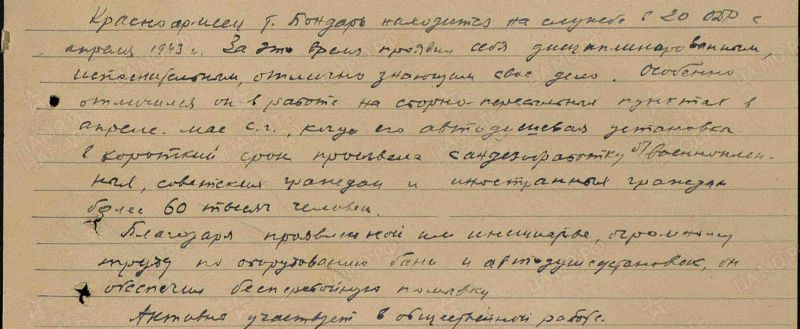 Красноармеец т. Бондарь находится на службе в 20 ОБР с
апреля 1943 г. За это время проявил себя дисциплинированным,
исполнительным, отлично знающим свое дело. Особенно
отличился он в работе на сборно-пересыльных пунктах в
апреле-мае с.г., когда его автодушевая установка
в короткий срок произвела сандезобработку б/военноплен-
ных, советских граждан и иностранных граждан
более 60 тысяч человек.
Благодаря проявленной им инициативе, огромному
труду по оборудованию бани и автодушустановок, он
обеспечил бесперебойную помывку
Активно участвует в общественной работе.